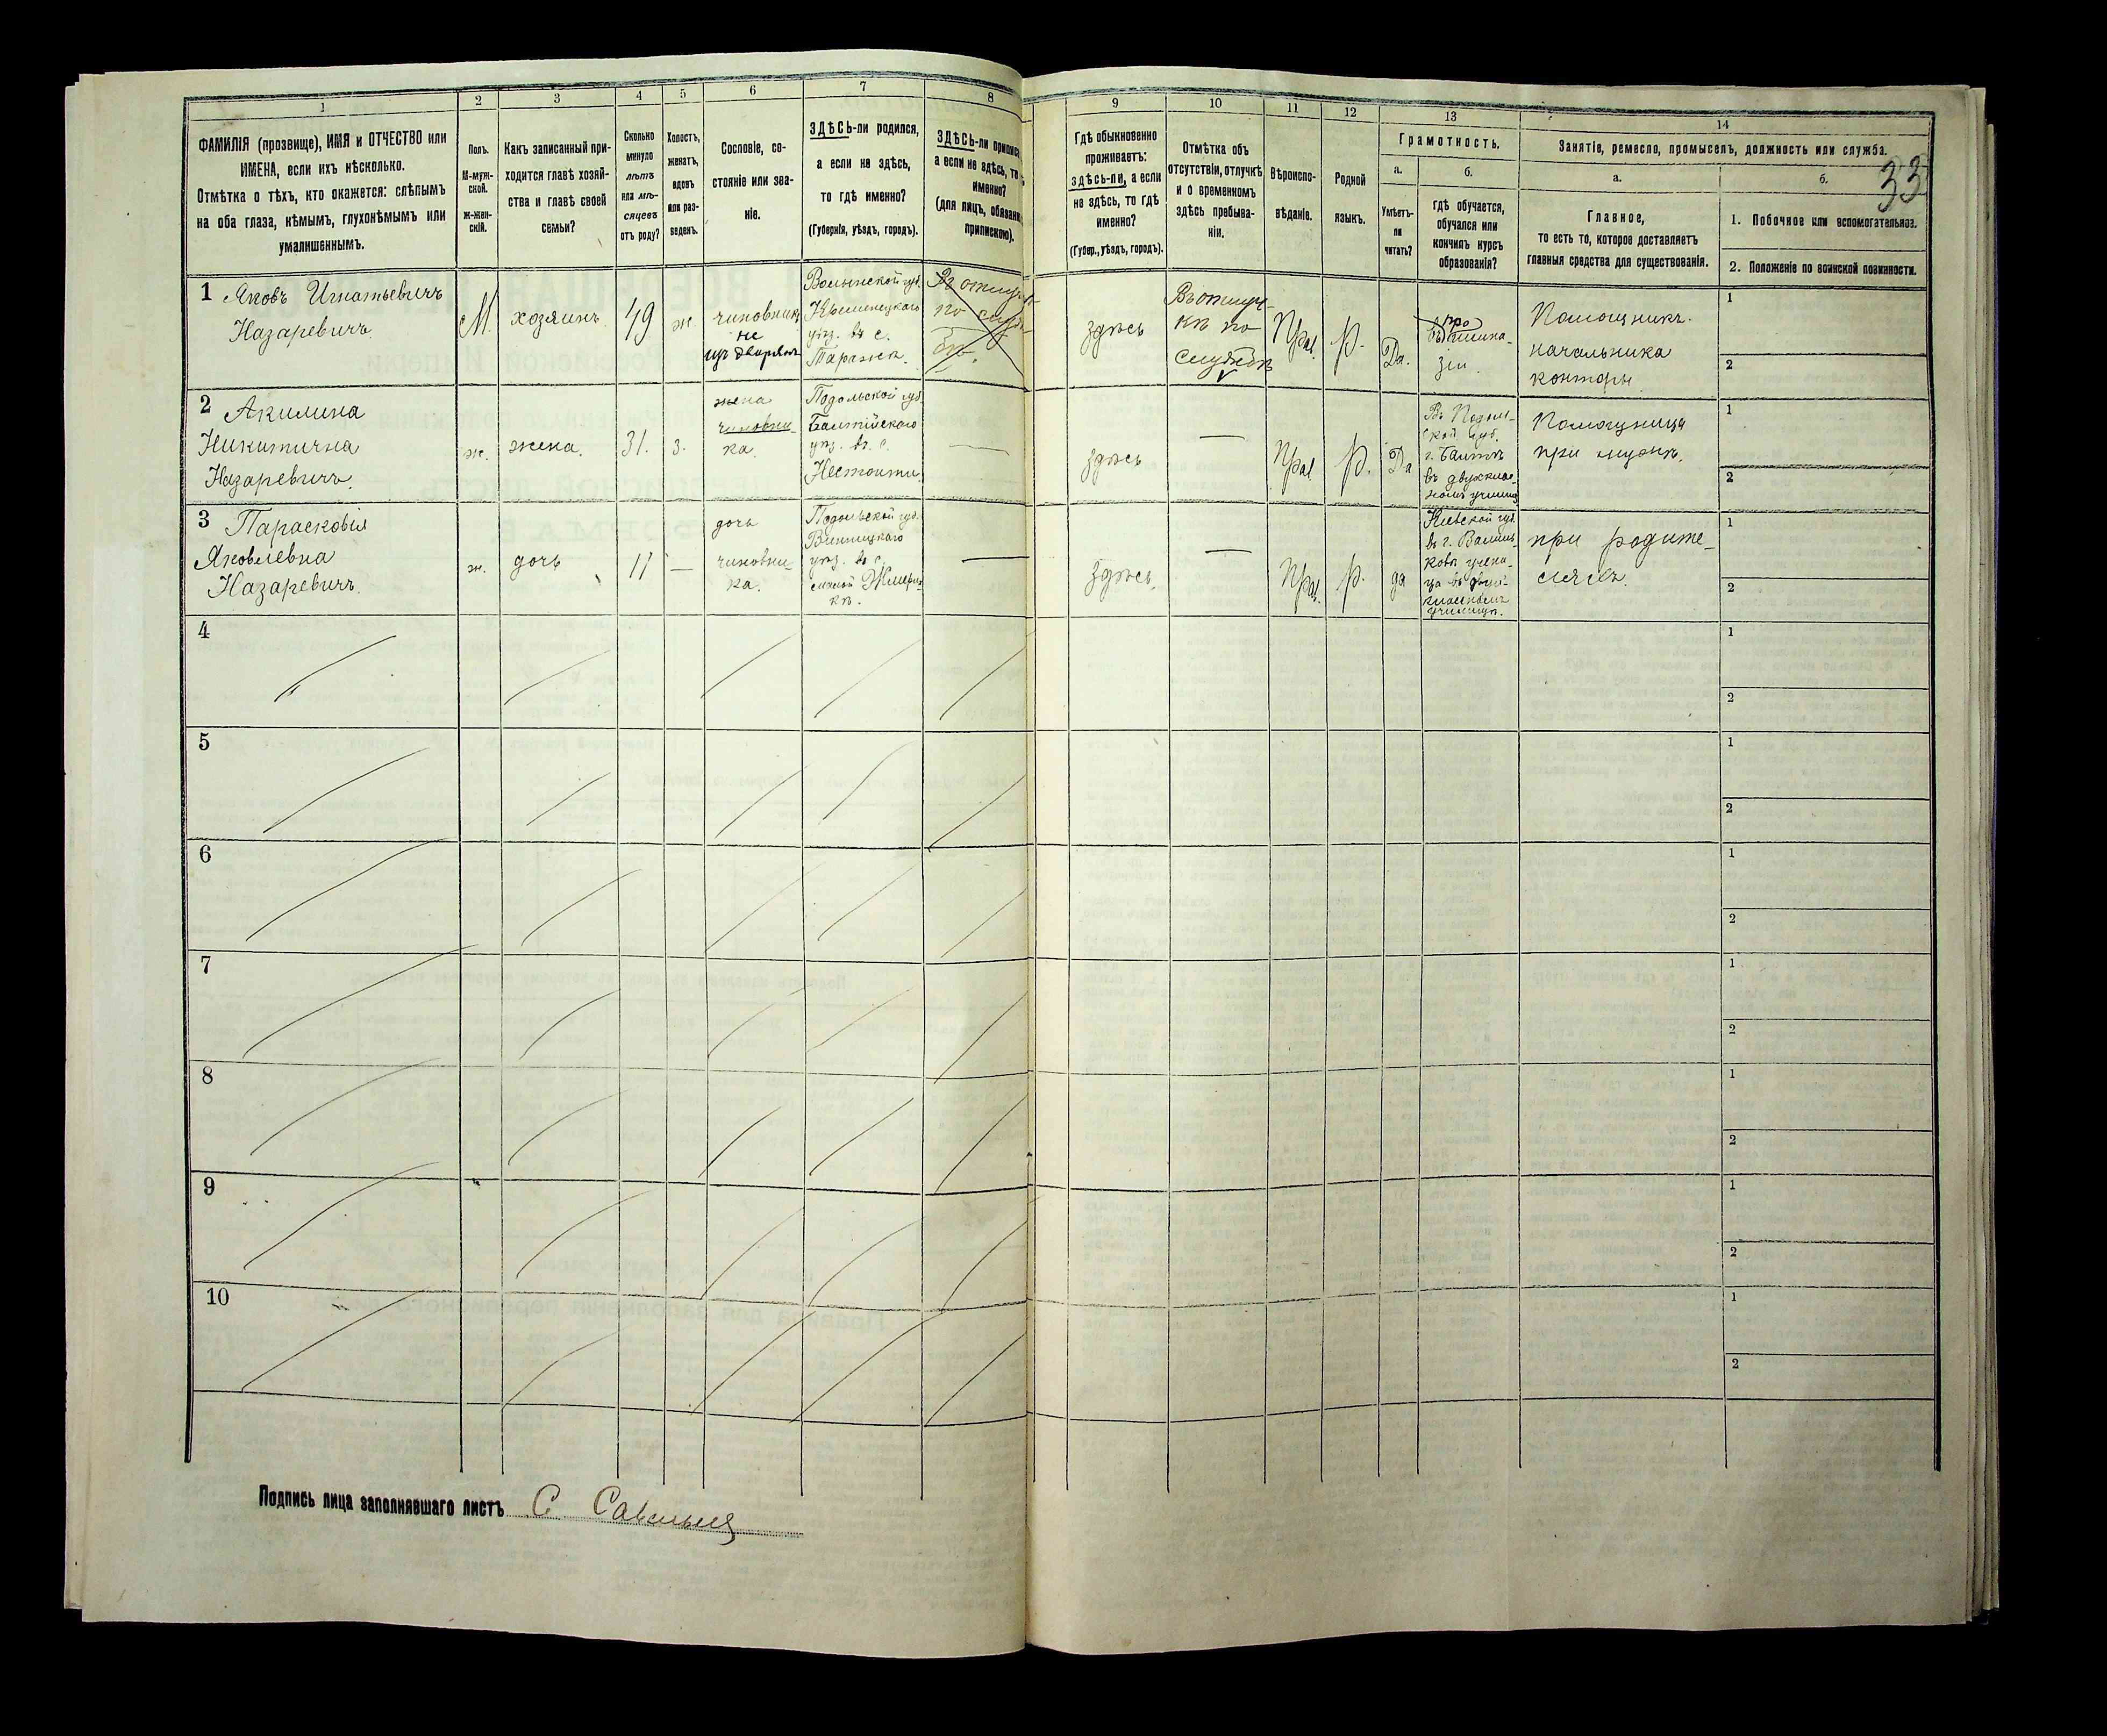 1
2
3
4
5
6
7
8
9
10
11
12
13
14
ФАМИЛІЯ (прозвище), ИМЯ и ОТЧЕСТВО или
ИМЕНА, если ихъ нѣсколько.
Отмѣтка о тѣхъ, кто окажется: слѣпымъ
на оба глаза, нѣмымъ, глухонѣмымъ или
умалишеннымъ.
Полъ.
М-муж-
ской.
ж-жен-
скій.
Какъ записанный при-
ходится главѣ хозяй-
ства и главѣ своей
семьи?
Сколько
минуло
лѣтъ
или мѣ-
сяцевъ
отъ роду?
Холостъ,
женатъ,
вдовъ
или раз-
веденъ.
Сословіе, со-
стояніе или зва-
ніе.
ЗДѢСЬ-ли родился,
а если не здѣсь,
то гдѣ именно?
(Губернія, уѣздъ, городъ).
ЗДѢСЬ-ли
а если не здѣсь, то
именно?
(для лицъ,
припискою).
Гдѣ обыкновенно
проживаетъ:
здѣсь-ли, а если
не здѣсь, то гдѣ
именно?
(Губер., уѣздъ, городъ).
Отмѣтка объ
отсутствіи, отлучкѣ
и о временномъ
здѣсь пребыва-
ніи.
Вѣроиспо-
вѣданіе.
Родной
языкъ.
Грамотность.
а.
б.
Умѣетъ-
ли
читать?
Гдѣ обучается,
обучался или
кончилъ курсъ
образованія?
Занятіе, ремесло, промыселъ, должность или служба.
33
а.
б.
Главное,
то есть то, которое доставляетъ
главныя средства для существованія.
1. Побочное или вспомогательное.
2. Положеніе по воинской повинности.
1 Яковъ Игнатьевичъ
Назаревичъ.
М.
хозяинъ
49
ж.
чиновникъ
не
изъ дворянъ
Волынской губ.
Кременецкаго
уѣз. въ с.
Таражи.
Въ отлучкѣ
по
здѣсь
Въ отлуч-
кѣ по
службѣ
Прав.
р.
Да.
про
въ гимна-
зіи.
Помощникъ
начальника
конторы.
1
2
2 Акилина
Никитична
Назаревичъ.
ж.
жена.
31.
з.
жена
чиновни-
ка.
Подольской губ.
Балтійскаго
уѣз. въ с.
здѣсь
Прав
р.
Да
Въ Подоль-
ской губ.
г. Балтѣ
въ двухклас-
номъ училищ.
Помощница
при мужѣ.
1
2
3 Парасковія
Яковлевна
Назаревичъ.
ж.
дочь
11
дочь
чиновни-
ка.
Подольской губ.
Винницкаго
уѣз. въ с.
Жмерин-
кѣ.
здѣсь.
Прав.
р.
да
Кіевской губ.
въ г. Василь-
ковѣ учени-
ца въ двух-
классномъ
училищѣ.
при родите-
ляхъ.
1
2
4
1
2
5
1
2
6
1
2
7
1
2
8
1
2
9
1
2
10
1
2
Подпись лица заполнявшаго листъ С